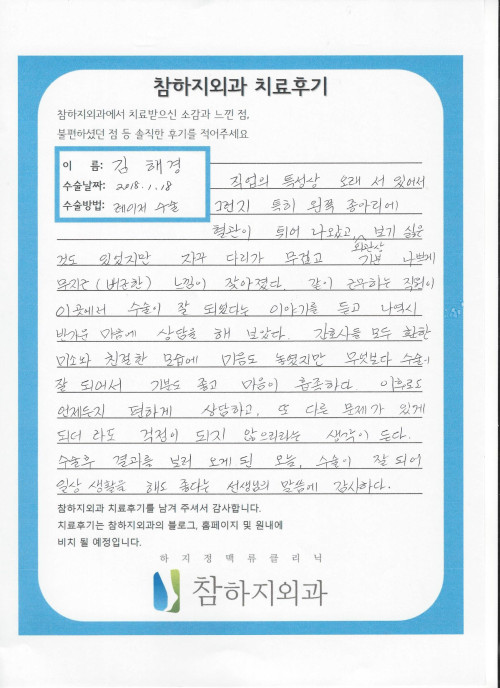 참하지외과 치료후기
참하지외과에서 치료받으신 소감과 느낀 점,
불편하셨던 점 등 솔직한 후기를 적어주세요
이 름: 김 해경
수술날짜: 2018.1.18
수술방법: 레이저 수술
직업의 특성상 오래 서 있어서
그런지 특히 왼쪽 종아리에
혈관이 튀어 나왔고, 외관상 보기 싫은
것도 있었지만 자꾸 다리가 무겁고 기분 나쁘게
무지근(뻐근한) 느낌이 잦아졌다. 같이 근무하는 직원이
이곳에서 수술이 잘 되었다는 이야기를 듣고 나역시
반가운 마음에 상담을 해 보았다. 간호사들 모두 환한
미소와 친절한 모습에 마음도 놓였지만 무엇보다 수술이
잘 되어서 기분도 좋고 마음이 흡족하다. 이후로도
언제든지 편하게 상담하고, 또 다른 문제가 있게
되더라도 걱정이 되지 않으리라는 생각이 든다.
수술후 결과를 보러 오게 된 오늘, 수술이 잘 되어
일상 생활을 해도 좋다는 선생님의 말씀에 감사하다.
참하지외과 치료후기를 남겨 주셔서 감사합니다.
치료후기는 참하지외과의 블로그, 홈페이지 및 원내에
비치 될 예정입니다.
하지정맥류클리닉
참하지외과